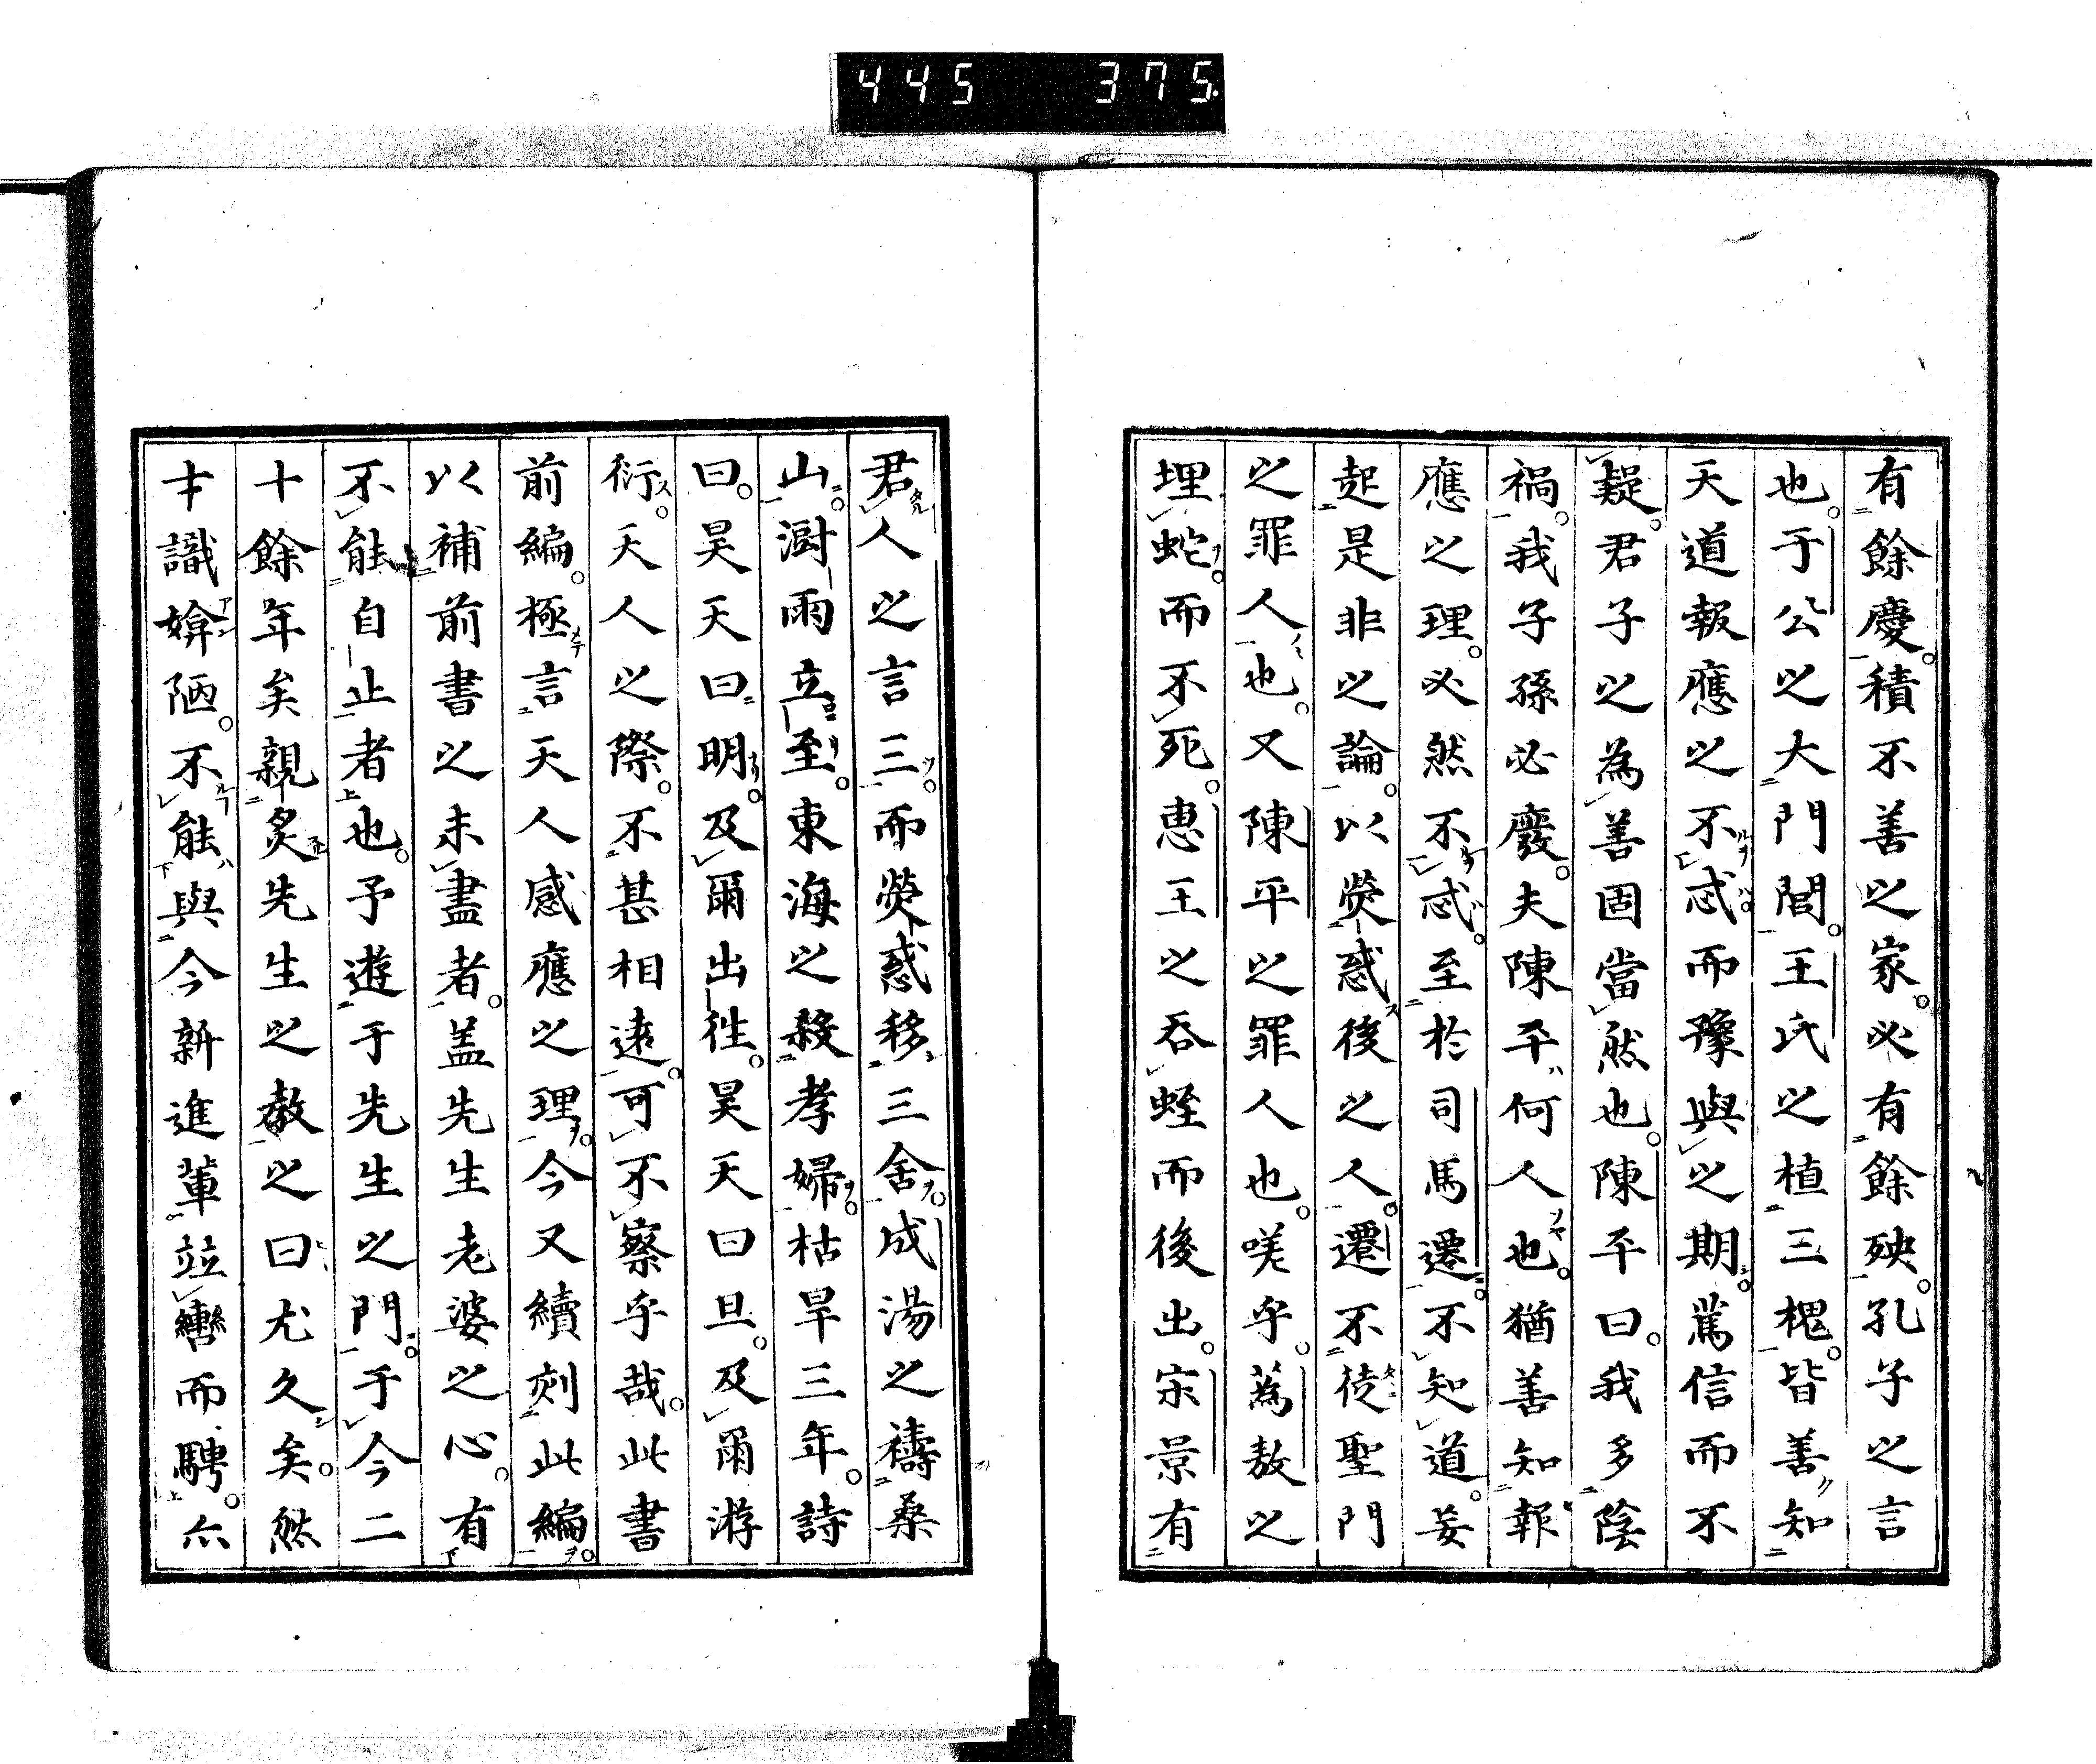 445 375
有餘慶。積不善之家。必有餘殃。孔子之言
也。于公之大門閭。王氏之植三槐。皆善知
天道報應之不忒而豫與之期。篤信而不
疑。君子之為善固當然也。陳平曰。我多陰
禍。我子孫必廢。夫陳平何人也。猶善知報
應之理。必然不忒。至於司馬遷。不知道。妄
起是非之論。以熒惑後之人。遷不徒聖門
之罪人也。又陳平之罪人也。嘆乎。蒍敖之
埋蛇。而不死。惠王之吞蛭而後出。宋景有
君人之言三。而熒惑移三舍。成湯之禱桑
山。澍雨立至。東海之殺孝婦。枯旱三年。詩
曰。昊天曰明。及爾出往。昊天曰旦。及爾游
衍。天人之際。不甚相遠。可不察乎哉。此書
前編。極言天人感應之理。今又續刻此編。
以補前書之未盡者。盖先生老婆之心。有
不能自止者也。予遊于先生之門。于今二
十餘年矣親炙先生之教之曰尤久矣。然
才識媕陋。不能與今新進輩竝轡而騁。亦